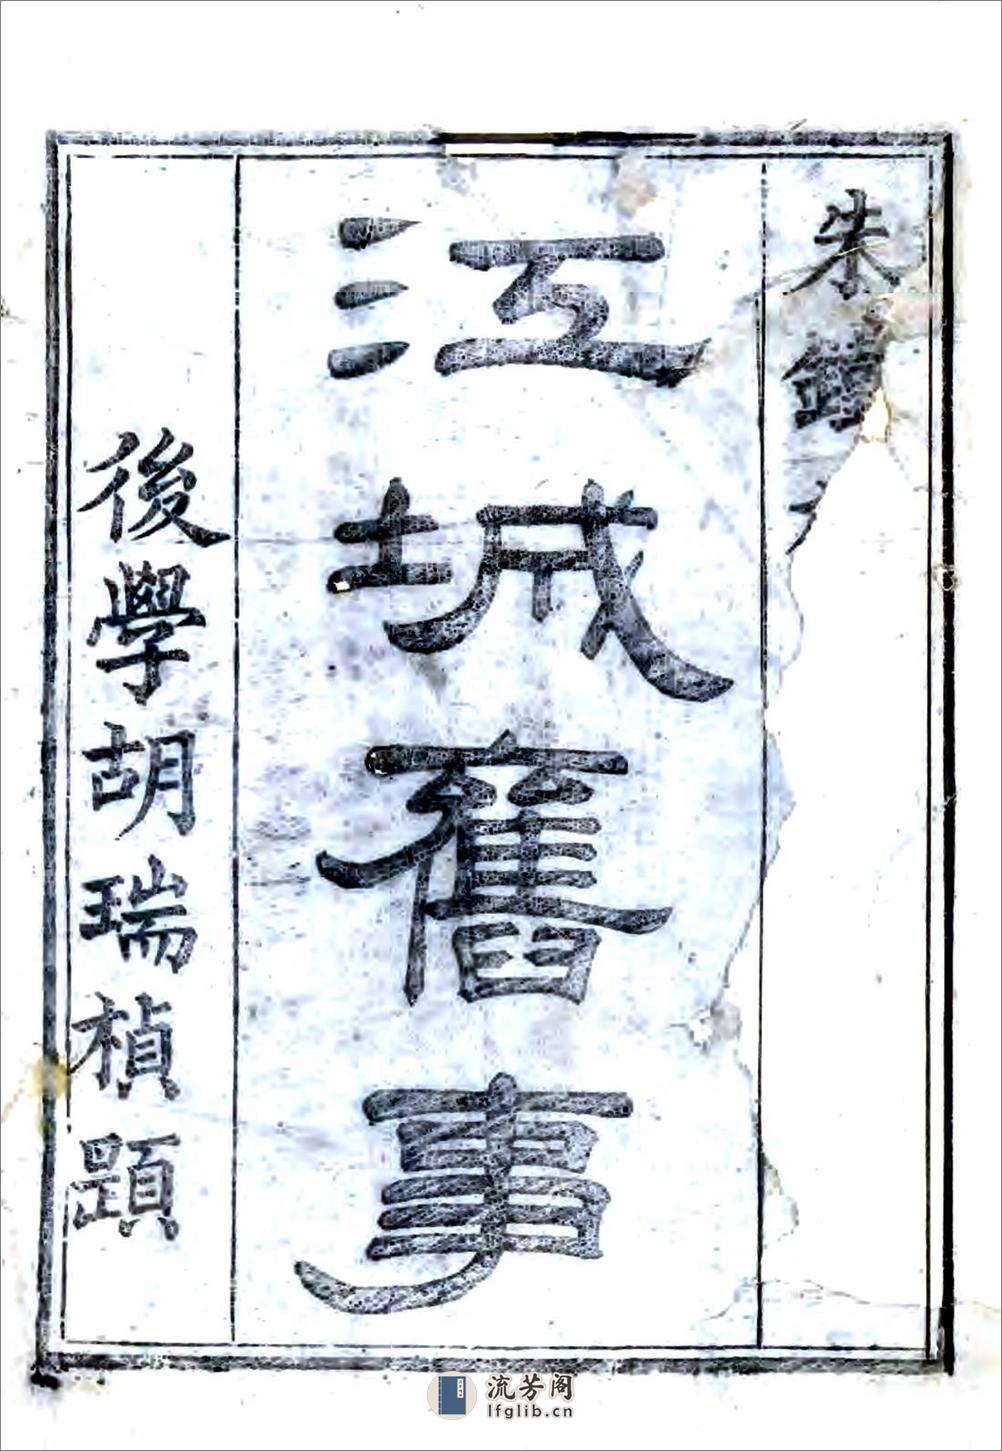 朱鐘
江城舊事
後學胡瑞楨題
流芳阁
lfglib.cn